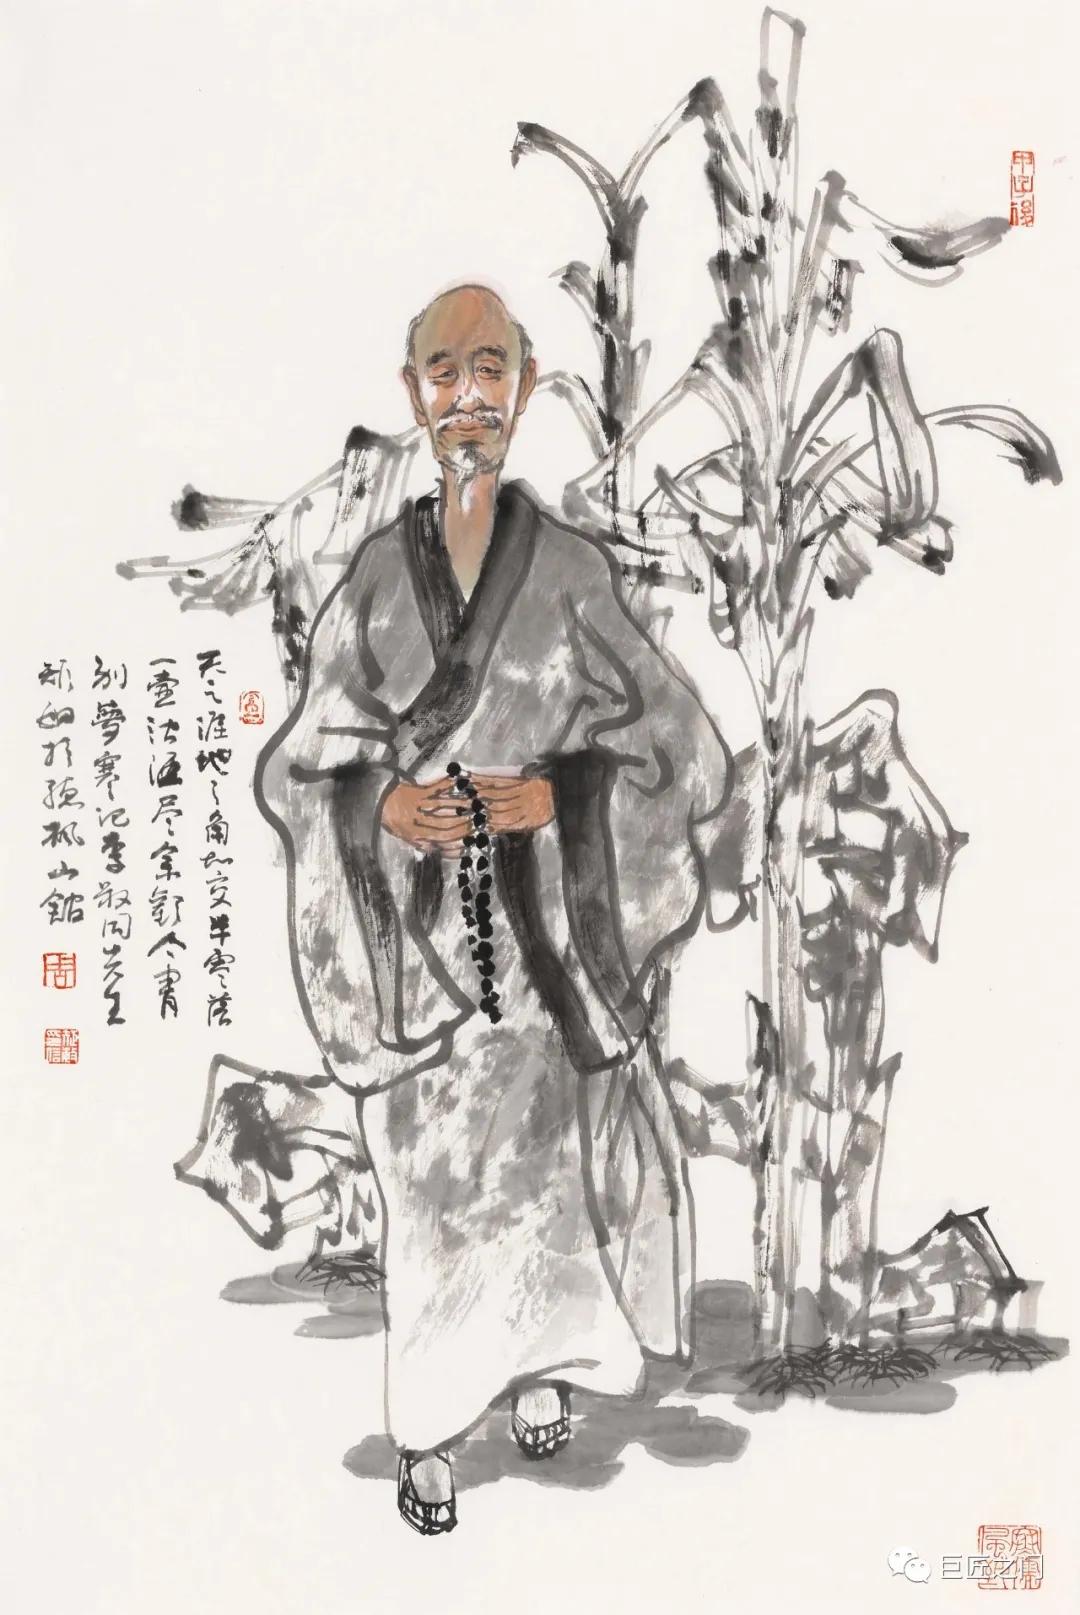 天之涯地之角知交半零落
一壶浊酒尽余欢今宵
别梦寒记李叔同先生
于听枫山馆
甲子後
周
巨匠之门